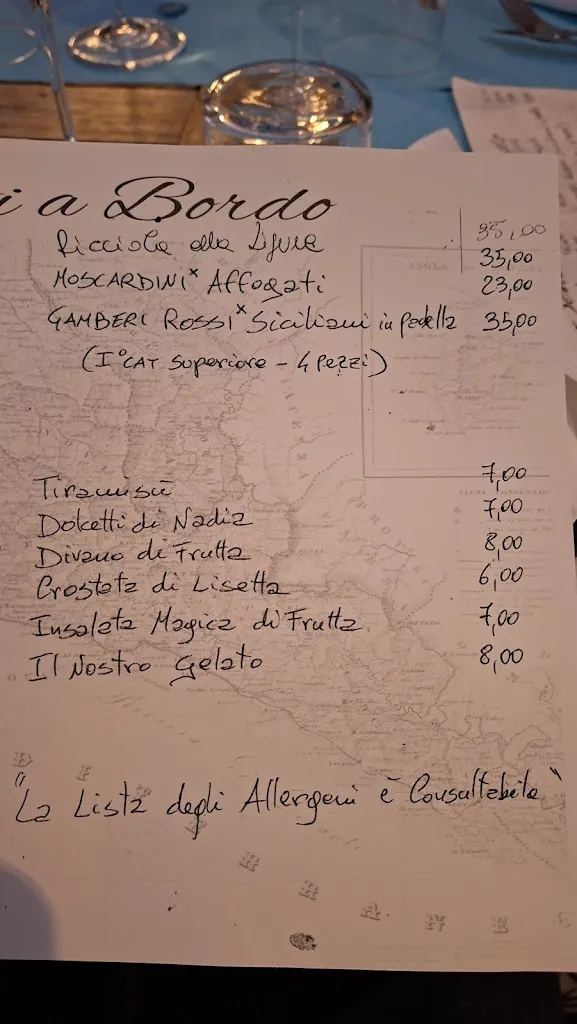 i a Bordo
35,00
Ricciola alla Ligure 35,00
MOSCARDINI x Affogati 23,00
GAMBERI ROSSI x Siciliani in padella 35,00
(I° CAT Superiore - 4 Pezzi)
Tiramisù 7,00
Dolcetti di Nadia 7,00
Divano di Frutta 8,00
Crostata di Lisetta 6,00
Insalata Magica di Frutta 7,00
Il Nostro Gelato 8,00
"La Lista degli Allergeni è Consultabile"